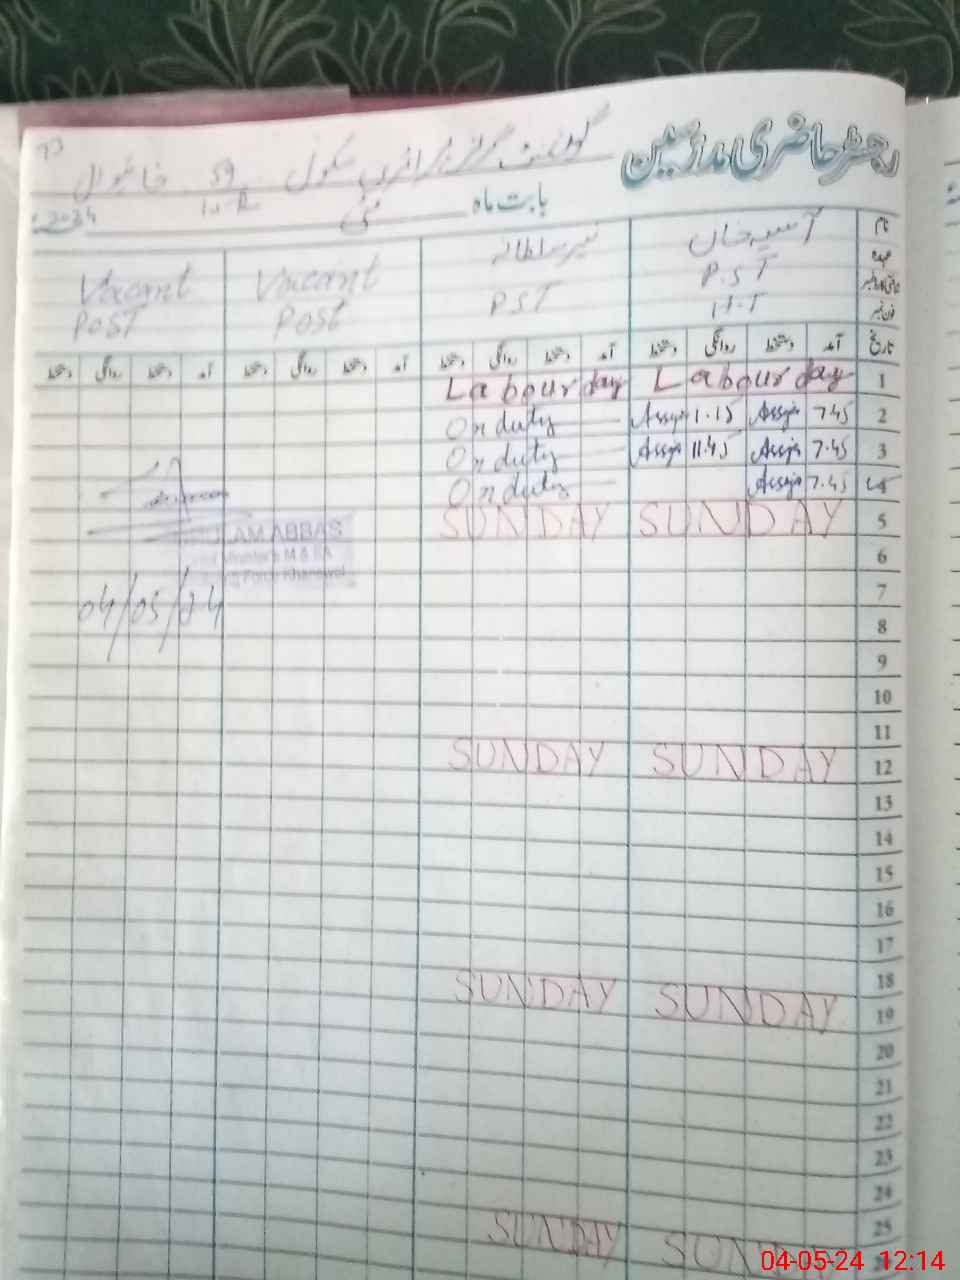 رجسٹر حاضری مدرسین
گورنمنٹ گرلز پرائمری سکول 59 10-R خانیوال
بابت ماہ مئی 2024ء
نام آسیہ خان Vacant Vacant
عہدہ P.S.T PST Post POST
H.T
تاریخ آمد دستخط روانگی دستخط آمد دستخط روانگی دستخط آمد دستخط روانگی دستخط آمد دستخط روانگی دستخط
1 Labour day Labour day
2 7.45 1.15 On duty
3 7.45 11.45 On duty
4 7.45 On duty
5 SUNDAY SUNDAY
AM ABBAS
04/05/24
6
7
8
9
10
11
12 SUNDAY SUNDAY
13
14
15
16
17
18
19 SUNDAY SUNDAY
20
21
22
23
24
25
SUNDAY SUNDAY
04-05-24 12:14